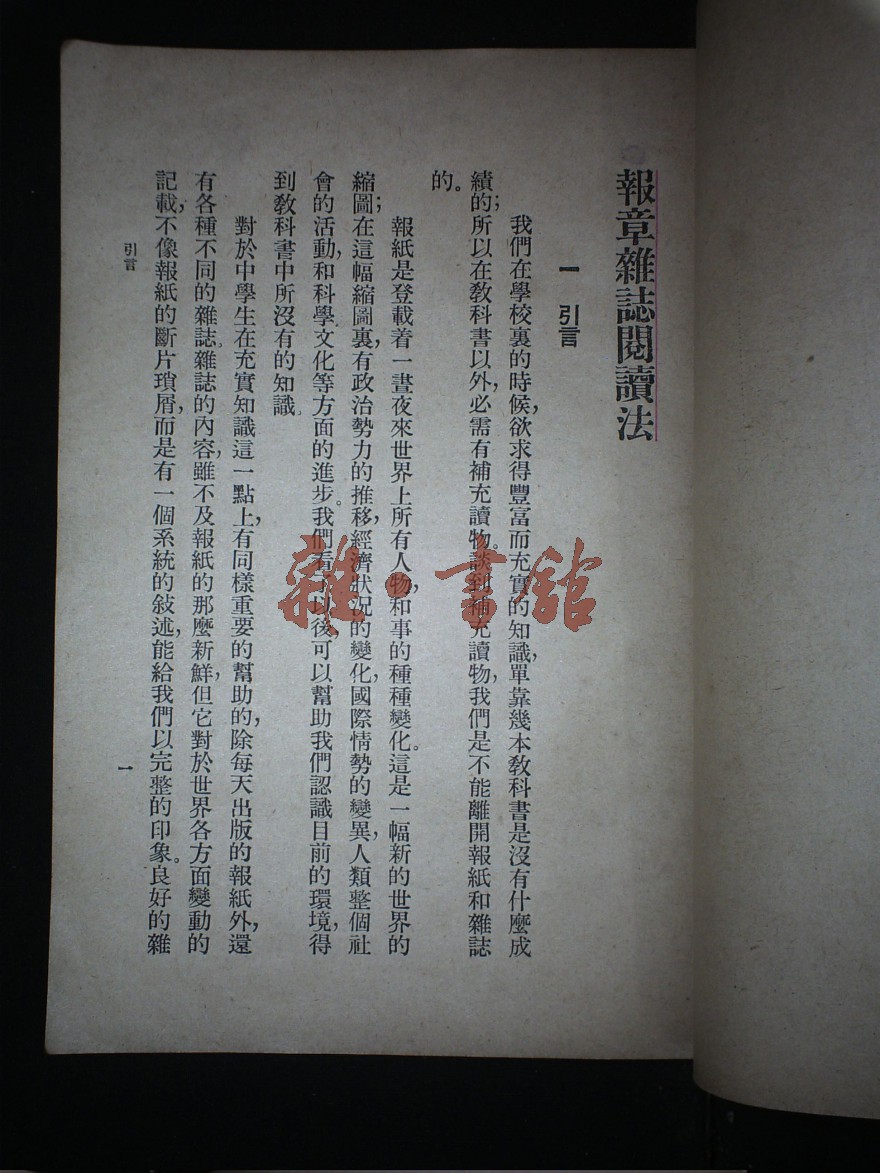 報章雜誌閱讀法
一 引言
我們在學校裏的時候,欲求得豐富而充實的知識,單靠幾本教科書是沒有什麼成
績的;所以在教科書以外,必需有補充讀物。談到補充讀物,我們是不能離開報紙和雜誌
的。
報紙是登載着一晝夜來世界上所有人物和事的種種變化。這是一幅新的世界的
縮圖;在這幅縮圖裏,有政治勢力的推移,經濟狀況的變化,國際情勢的變異,人類整個社
會的活動,和科學文化等方面的進步。我們看了以後,可以幫助我們認識目前的環境,得
到教科書中所沒有的知識。
對於中學生在充實知識這一點上,有同樣重要的幫助的,除每天出版的報紙外,還
有各種不同的雜誌。雜誌的內容,雖不及報紙的那麼新鮮,但它對於世界各方面變動的
記載,不像報紙的斷片瑣屑,而是有一個系統的敍述,能給我們以完整的印象。良好的雜
引言
一
雜·書館